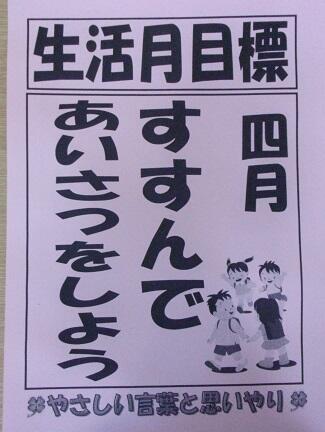 生活月目標
四月
すすんで
あいさつをしよう
やさしい言葉と思いやり